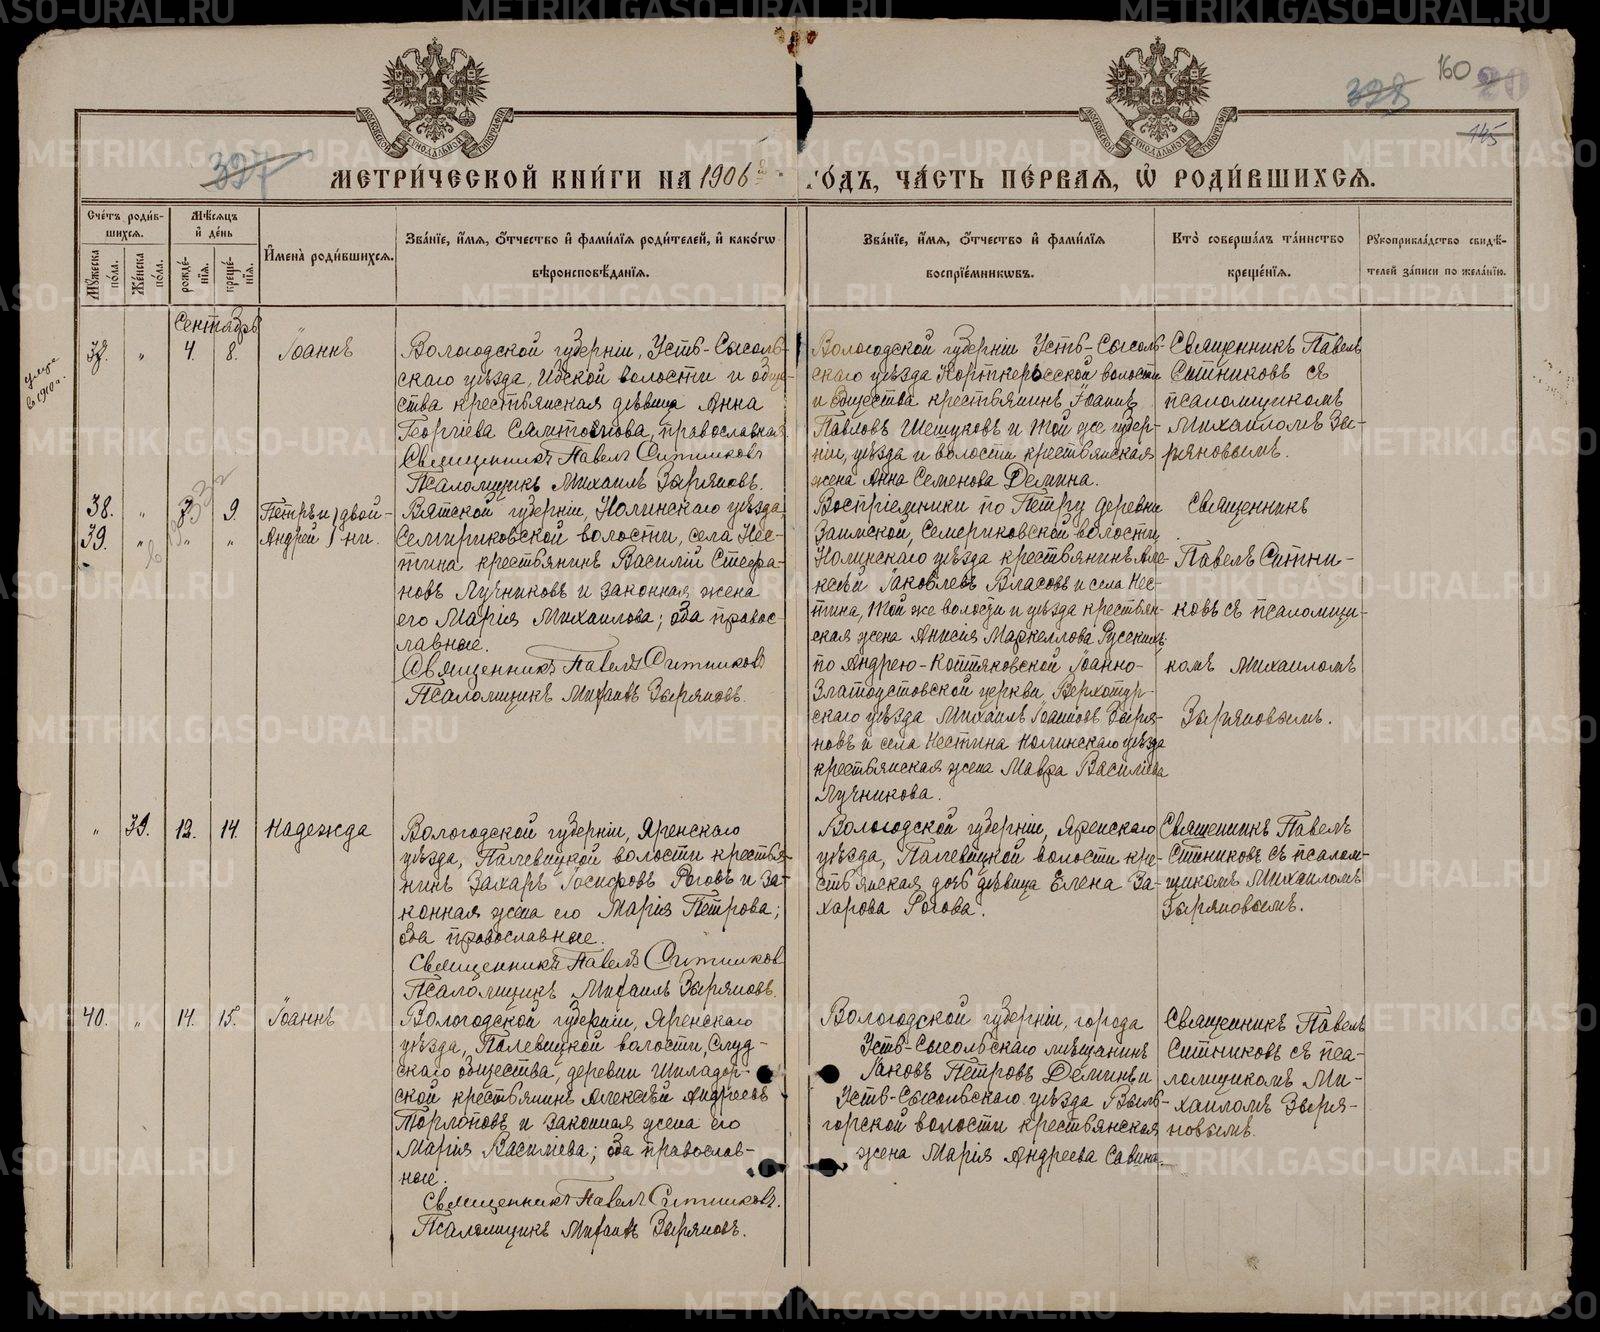 160
МОСКОВСКОЙ СѴНОДАЛЬНОЙ ТИПОГРАФІИ
МОСКОВСКОЙ СѴНОДАЛЬНОЙ ТИПОГРАФІИ
327
145
МЕТРИ́ЧЕСКОЙ КНИ́ГИ НА 1906 ГО́ДЪ, ЧА́СТЬ ПЕ́РВАѦ, Ѡ РОДИ́ВШИХСѦ.
Сче́тъ роди́в-
шихсѧ.
Мѣ́сѧцъ
и҆ де́нь
Мꙋ́жеска
по́ла.
Же́нска
по́ла.
рожде́-
нїѧ.
креще́-
нїѧ.
И҆мена̀ роди́вшихсѧ.
Зва́нїе, и҆́мѧ, ѻ҆́тчество и҆ фами́лїѧ роди́телей, и҆ како́гѡ
вѣроисповѣ́данїѧ.
Зва́нїе, и҆́мѧ, ѻ҆́тчество и҆ фами́лїѧ
воспрїе́мникѡвъ.
Кто̀ соверша́лъ та́инство
креще́нїѧ.
Рꙋкоприкла́дство свидѣ́-
телей за́писи по жела́нїю.
Сентябрь
умеръ
въ 1910 г.
" 4. 8. Іоаннъ
Вологодской губерніи, Усть-Сысоль-
скаго уѣзда, Ибской волости и обще-
ства крестьянская дѣвица Анна
Георгіева, православная.
Священникъ Павелъ Ситниковъ
Псаломщикъ Михаилъ Зыряновъ.
Вологодской губерніи Усть-Сысоль-
скаго уѣзда Корткеросской волости
и общества крестьянинъ Іоаннъ
Павловъ Шешуковъ и той же губер-
ніи, уѣзда и волости крестьянская
жена Анна Семенова Демина.
Священникъ Павелъ
Ситниковъ съ
псаломщикомъ
Михаиломъ Зы-
ряновымъ.
38. " 9. Петръ и } двой-
39. " " " Андрей } ни.
Вятской губерніи, Нолинскаго уѣзда,
волости, села Нес-
тина крестьянинъ Василій Стефа-
новъ Лучниковъ и законная жена
его Марія Михаилова; оба правос-
лавные.
Священникъ Павелъ Ситниковъ
Псаломщикъ Михаилъ Зыряновъ.
Воспріемники по Петру деревни
Заимской, Семериковской волости,
Нолинскаго уѣзда крестьянинъ Але-
ксѣй Іаковлевъ Власовъ и села Нес-
тина, той же волости и уѣзда крестьян-
ская жена Анисія Маркеллова
по Андрею - Коптяковской Іоанно-
Златоустовской церкви, Верхотур-
скаго уѣзда Михаилъ Іоанновъ Зыря-
новъ и села Нестина Нолинскаго уѣзда
крестьянская жена Мавра Василіева
Лучникова.
Священникъ
Павелъ Ситни-
ковъ съ псаломщи-
комъ Михаиломъ
Зыряновымъ.
" 12. 14. Надежда
Вологодской губерніи, Яренскаго
уѣзда, Палевицкой волости крестья-
нинъ Захаръ Іосифовъ Роговъ и за-
конная жена его Марія Петрова;
оба православные.
Священникъ Павелъ Ситниковъ
Псаломщикъ Михаилъ Зыряновъ.
Вологодской губерніи, Яренскаго
уѣзда, Палевицкой волости кре-
стьянская дочь дѣвица Елена За-
харова Рогова.
Священникъ Павелъ
Ситниковъ съ псалом-
щикомъ Михаиломъ
Зыряновымъ.
40. " 14. 15. Іоаннъ
Вологодской губерніи, Яренскаго
уѣзда, Палевицкой волости, Слуд-
скаго общества, деревни Шиладор-
ской крестьянинъ Алексѣй Андреевъ
Торлоповъ и законная жена его
Марія Василіева; оба православ-
ные.
Священникъ Павелъ Ситниковъ.
Псаломщикъ Михаилъ Зыряновъ.
Вологодской губерніи, города
Усть-Сысольскаго мѣщанинъ
Іаковъ Петровъ Деминъ и
Усть-Сысольскаго уѣзда Выль-
горской волости крестьянская
жена Марія Андреева Савина.
Священникъ Павелъ
Ситниковъ съ пса-
ломщикомъ Ми-
хаиломъ Зыря-
новымъ.
METRIKI.GASO-URAL.RU